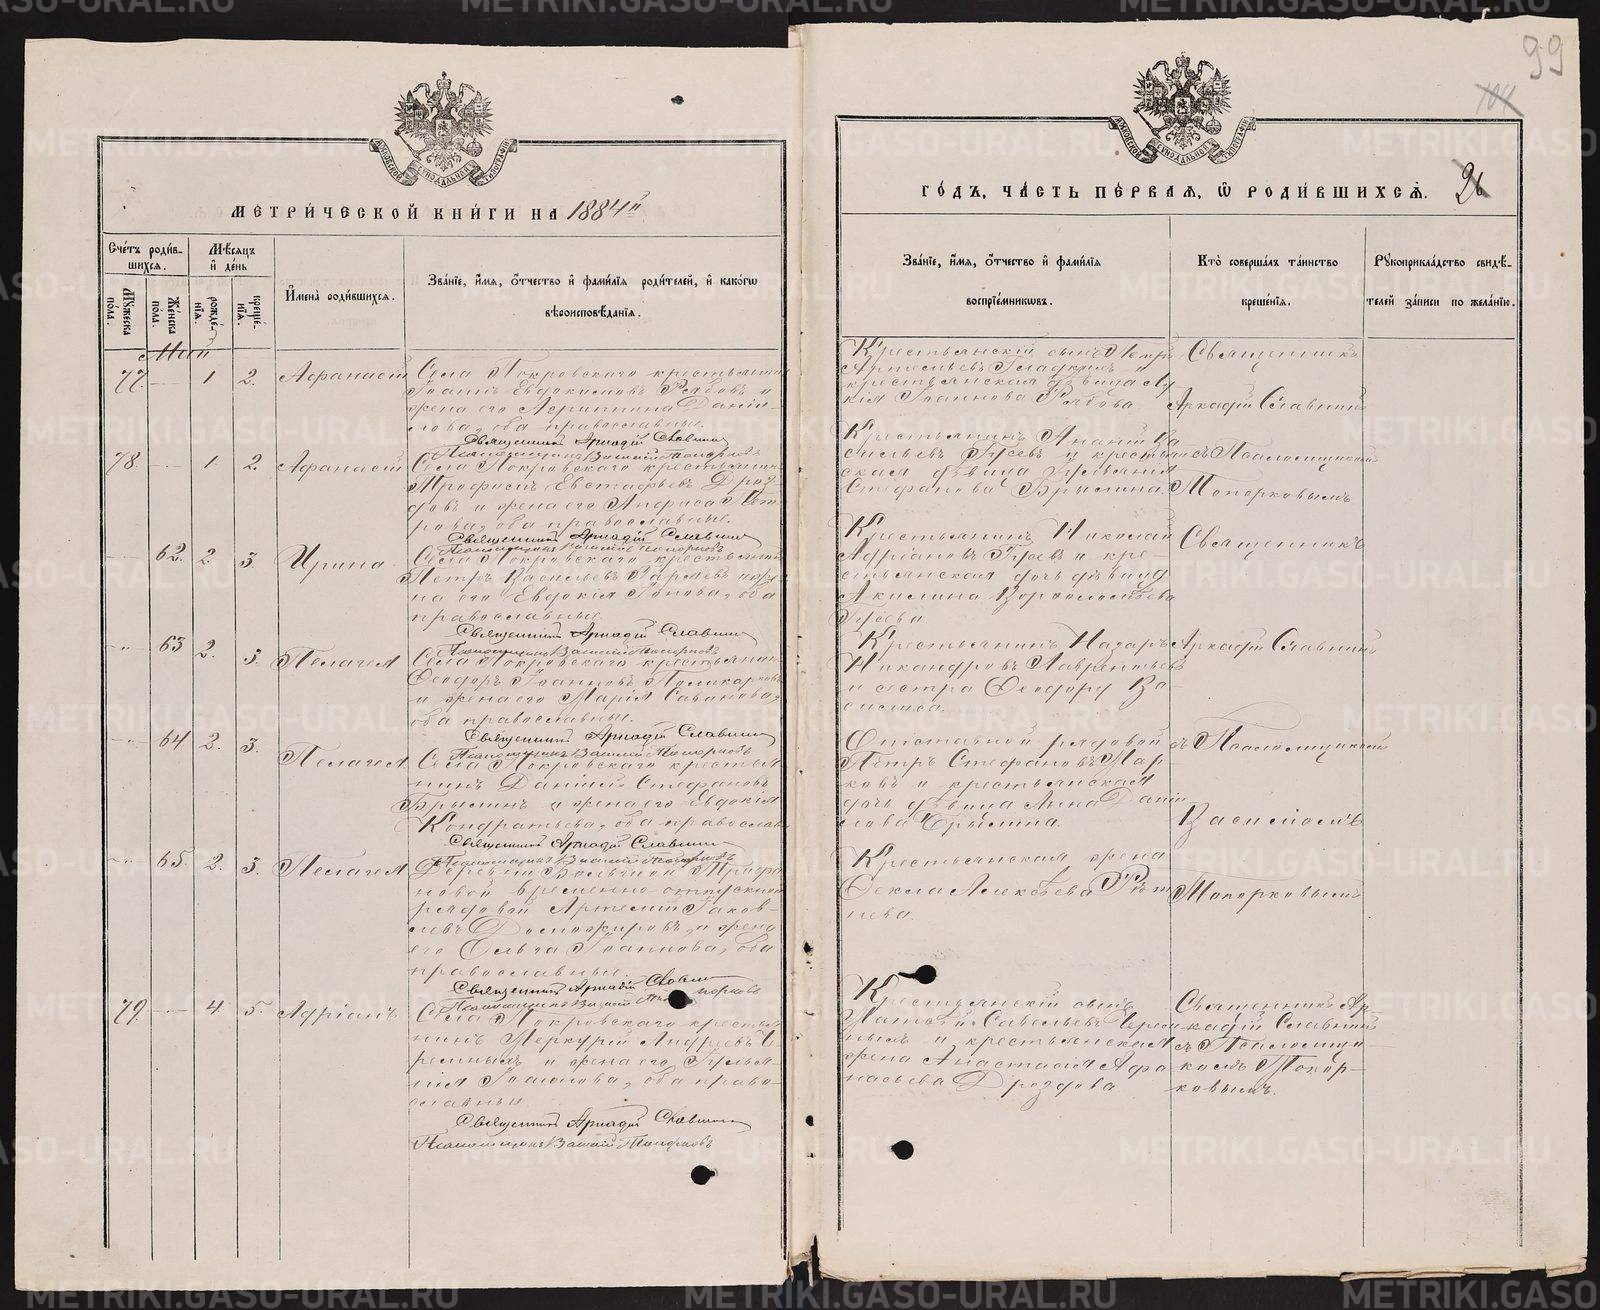 99
104
МОСКОВСКОЙ СѴНОДАЛЬНОЙ ТИПОГРАФІИ
МЕТРИ́ЧЕСКОЙ КНИ́ГИ НА 1884й
Сче́тъ роди́в-
шихся.
Мѣ́сяцъ
и҆ де́нь
Му́жеска по́ла.
Же́нска по́ла.
рожде́-
нїѧ.
креще́-
нїѧ.
И҆мена̀ роди́вшихся.
Зва́нїе, и҆́мѧ, ѻ҆́тчество и҆ фами́лїѧ роди́телей, и҆ како́гѡ
вѣроисповѣ́данїѧ.
Май
77. 1 2. Афанасій Села Покровскаго крестьянинъ
Іоаннъ Евдокимовъ Рябовъ и
жена его Агриппина Даніи-
лова, оба православные.
Священникъ Аркадій Славнинъ
Псаломщикъ Василій Топорковъ
78. 1. 2. Афанасій Села Покровскаго крестьянинъ
Трофимъ Евстафьевъ Дроз-
довъ и жена его Анфиса Пет-
рова, оба православные.
Священникъ Аркадій Славнинъ
Псаломщикъ Василій Топорковъ
62. 2. 3 Ирина Села Покровскаго крестьянинъ
Петръ Васильевъ и же-
на его Евдокія оба
православные.
Священникъ Аркадій Славнинъ
Псаломщикъ Василій Топорковъ
63 2. 3. Пелагея Села Покровскаго крестьянинъ
Ѳеодоръ Іоанновъ Поликарповъ
и жена его Марія Савинова,
оба православные.
Священникъ Аркадій Славнинъ
Псаломщикъ Василій Топорковъ
64 2. 3. Пелагея Села Покровскаго крестья-
нинъ Даніилъ Стефановъ
Брылинъ и жена его Евдокія
Кондратьева, оба православ
Священникъ Аркадій Славнинъ
Псаломщикъ Василій Топорковъ
65. 2. 3. Пелагея Деревни Большой Трифо-
новой временно отпускной
рядовой Артемій Іаков-
левъ Доможировъ, и жена
его Ольга Іоаннова, оба
православные.
Священникъ Аркадій Славнинъ
Псаломщикъ Василій Топорковъ
79. 4 5. Адріанъ Села Покровскаго крестья-
нинъ Меркурій Андреевъ Че-
ремныхъ и жена его Іулья-
нія оба право-
славные
Священникъ Аркадій Славнинъ
Псаломщикъ Василій Топорковъ
ГО́ДЪ, ЧА́СТЬ ПЕ́РВАЯ, Ѽ РОДИ́ВШИХСЯ. 26
Зва́нїе, и҆́мѧ, ѻ҆́тчество и҆ фами́лїѧ
воспрїе́мниковъ.
Кто̀ соверша́лъ та́инство
креще́нїѧ.
Рꙋкоприкла́дство свидѣ́-
телей за́писи по жела́нїю.
Крестьянскій сынъ Петръ
Артемьевъ Гладкихъ и
крестьянская дѣвица Лу-
кія Іоаннова Рябова
Крестьянинъ Ананій Ва-
сильевъ Гусевъ и крестьян-
ская дѣвица Іуліанія
Стефанова Брылина.
Крестьянинъ Николай
Адріановъ Гусевъ и кре-
стьянская дочь дѣвица
Акилина Варѳоломеева
Гусева
Крестьянинъ Назаръ
Никандровъ Лаврентьевъ
и сестра Ѳеодору Ва-
силиса.
Отставной рядовой
Петръ Стефановъ Мар-
ковъ и крестьянская
дочь дѣвица Анна Даніи-
лова Брылина.
Крестьянская жена
Ѳекла Алексѣева Рѣп-
нева.
Крестьянскій сынъ
Матѳей Савельевъ Черем-
ныхъ и крестьянская
жена Анастасія Афа-
насьева Дроздова
Священникъ
Аркадій Славнинъ
съ Псаломщикомъ
Топорковымъ
Священникъ
Аркадій Славнинъ
съ Псаломщикомъ
Василіемъ
Топорковымъ
Священникъ Ар-
кадій Славнинъ
съ Псаломщи-
комъ Топор-
ковымъ.
METRIKI.GASO-URAL.RU